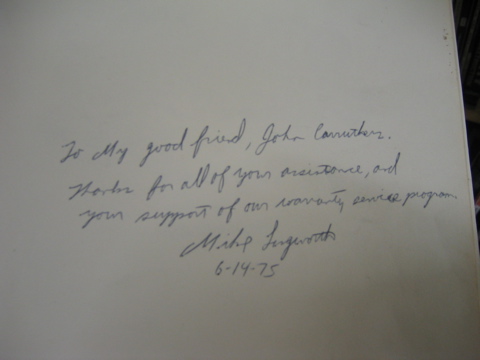 To My good friend, John Carruthers.
Thanks for all of your assistance, and
your support of our warranty service program
Mike
6-14-75